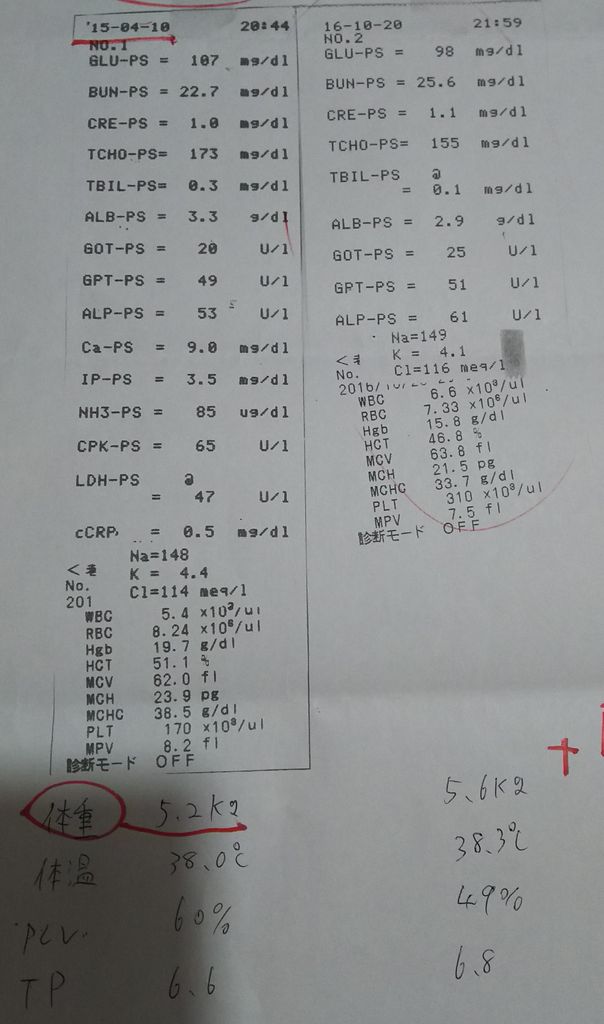 '15-04-10 20:44
NO.1
GLU-PS = 107 mg/dl
BUN-PS = 22.7 mg/dl
CRE-PS = 1.0 mg/dl
TCHO-PS= 173 mg/dl
TBIL-PS= 0.3 mg/dl
ALB-PS = 3.3 g/dl
GOT-PS = 20 U/l
GPT-PS = 49 U/l
ALP-PS = 53 U/l
Ca-PS = 9.0 mg/dl
IP-PS = 3.5 mg/dl
NH3-PS = 85 ug/dl
CPK-PS = 65 U/l
LDH-PS @
= 47 U/l
cCRP = 0.5 mg/dl
Na=148
K = 4.4
Cl=114 meq/l
No.
201
WBC 5.4 x10³/ul
RBC 8.24 x10⁶/ul
Hgb 19.7 g/dl
HCT 51.1 %
MCV 62.0 fl
MCH 23.9 pg
MCHC 38.5 g/dl
PLT 170 x10³/ul
MPV 8.2 fl
診断モード OFF
16-10-20 21:59
NO.2
GLU-PS = 98 mg/dl
BUN-PS = 25.6 mg/dl
CRE-PS = 1.1 mg/dl
TCHO-PS= 155 mg/dl
TBIL-PS @
= 0.1 mg/dl
ALB-PS = 2.9 g/dl
GOT-PS = 25 U/l
GPT-PS = 51 U/l
ALP-PS = 61 U/l
Na=149
K = 4.1
Cl=116 meq/l
No.
2016/10/20
WBC 6.6 x10³/ul
RBC 7.33 x10⁶/ul
Hgb 15.8 g/dl
HCT 46.8 %
MCV 63.8 fl
MCH 21.5 pg
MCHC 33.7 g/dl
PLT 310 x10³/ul
MPV 7.5 fl
診断モード OFF
体重 5.2Kg 5.6Kg
体温 38.0℃ 38.3℃
PCV. 60% 49%
TP 6.6 6.8